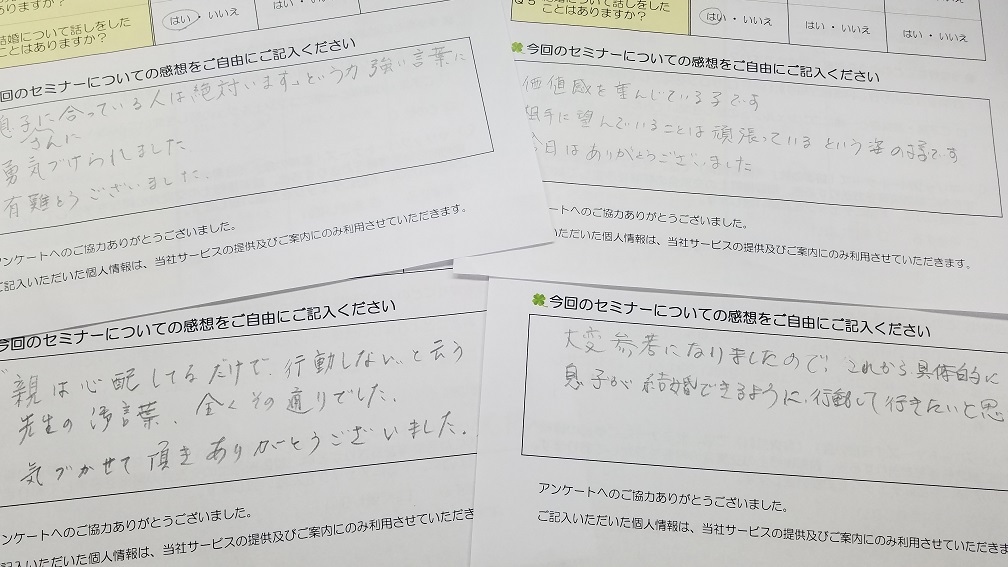 結婚について話しをした
ことはありますか?
はい・いいえ
今回のセミナーについての感想をご自由にご記入ください
息子に合っている人は「絶対います」という力強い言葉に
さんに
勇気づけられました
有難とうございました.
アンケートへのご協力ありがとうございました。
ご記入いただいた個人情報は、当社サービスの提供及びご案内にのみ利用させていただきます。
Q5
結婚について話しをした
ことはありますか?
はい・いいえ
はい・いいえ
はい・いいえ
今回のセミナーについての感想をご自由にご記入ください
価値感を重んじている子です
相手に望んでいることは頑張っているという姿の様です
今日はありがとうございました
アンケートへのご協力ありがとうございました。
いただいた個人情報は、当社サービスの提供及びご案内にのみ利用させていただきます。
今回のセミナーについての感想をご自由にご記入ください
親は心配してるだけで、行動しない、と云う
先生の言葉、全くその通りでした.
気づかせて頂きありがとうございました.
アンケートへのご協力ありがとうございました。
ご記入いただいた個人情報は、当社サービスの提供及びご案内にのみ利用させていただきま
今回のセミナーについての感想をご自由にご記入ください
大変参考になりましたので、これから具体的に
息子が結婚できるように、行動して行きたいと思
アンケートへのご協力ありがとうございました。
ご記入いただいた個人情報は、当社サービスの提供及びご案内にのみ利用させていただきま